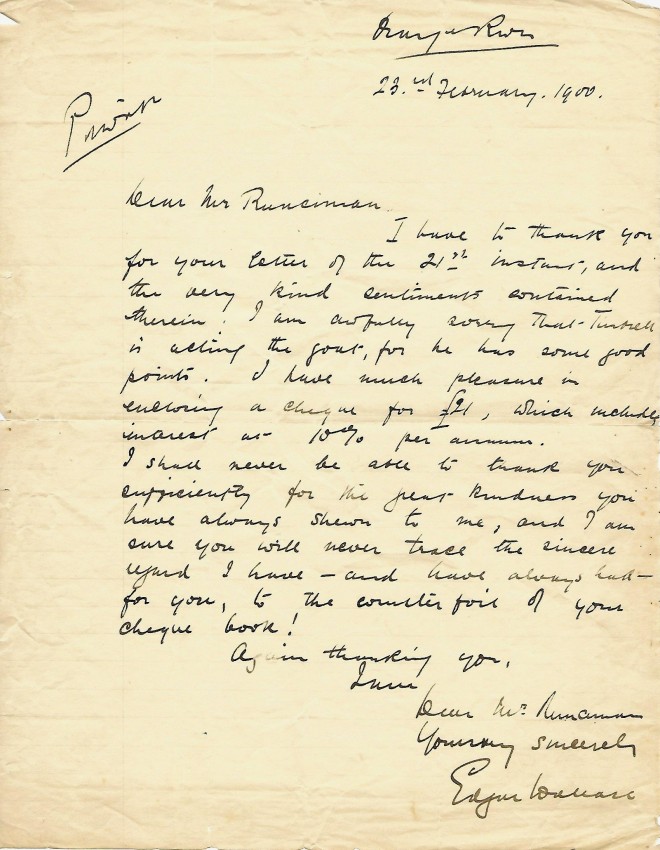 Orange River
23.rd February. 1900.
Private
Dear Mr Runciman
I have to thank you
for your letter of the 21st instant, and
the very kind sentiments contained
therein. I am awfully sorry that
is acting the goat, for he has some good
points. I have much pleasure in
enclosing a cheque for £21, which includes
interest at 10% per annum.
I shall never be able to thank you
sufficiently for the great kindness you
have always shewn to me, and I am
sure you will never trace the sincere
regard I have – and have always had –
for you, to the counterfoil of your
cheque book!
Again thanking you,
I am
Dear Mr Runciman
Yours very sincerely
Edgar Wallace